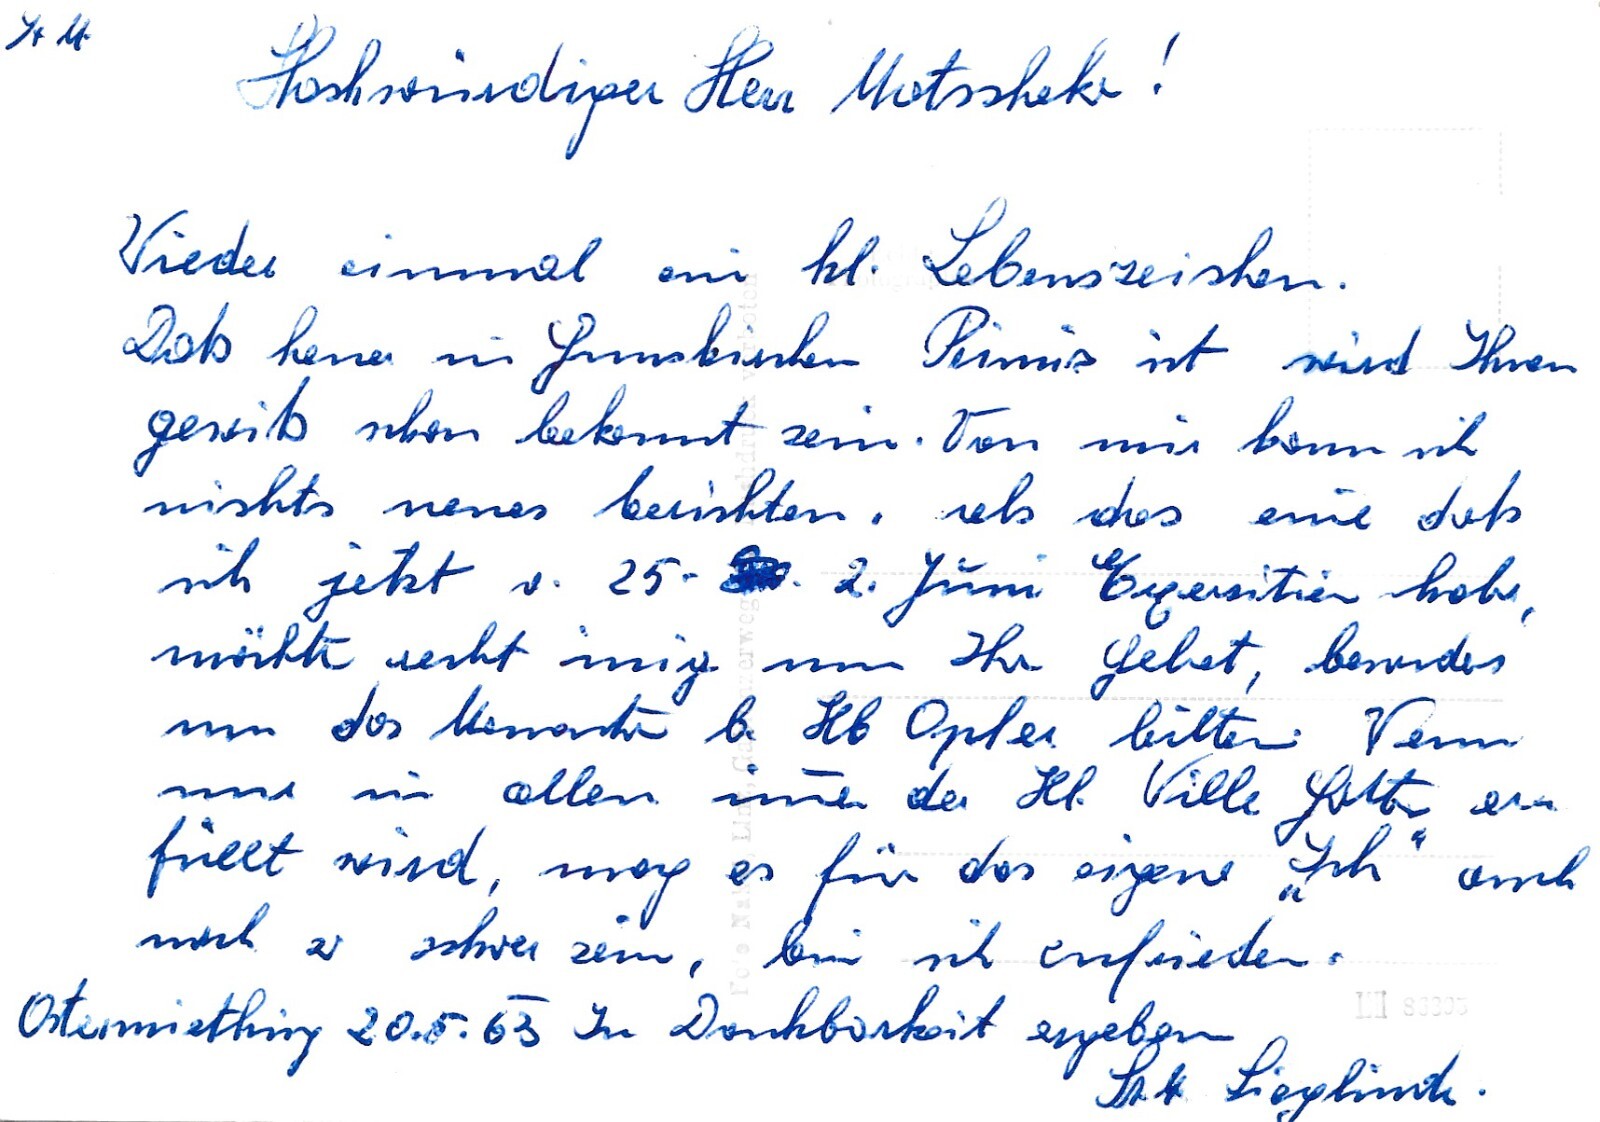 Hochwürdiger Herr Motscheke!
Wieder einmal ein kl. Lebenszeichen.
Daß heuer in Gunskirchen Primiz ist wird Ihnen
gewiß schon bekannt sein. Von mir kann ich
nichts neues berichten, als das eine daß
ich jetzt v. 25. 2. Juni Exerzitien habe,
möchte recht innig um Ihr Gebet, besonders
um das Memento b. Hl Opfer bitten. Wenn
nur in allen im̅er der Hl. Wille Gottes er-
füllt wird, mag es für das eigene „Ich" auch
noch so schwer sein, bin ich zufrieden.
Ostermiething 20.5.63 In Dankbarkeit ergeben
Sr. M. Sieglinde.